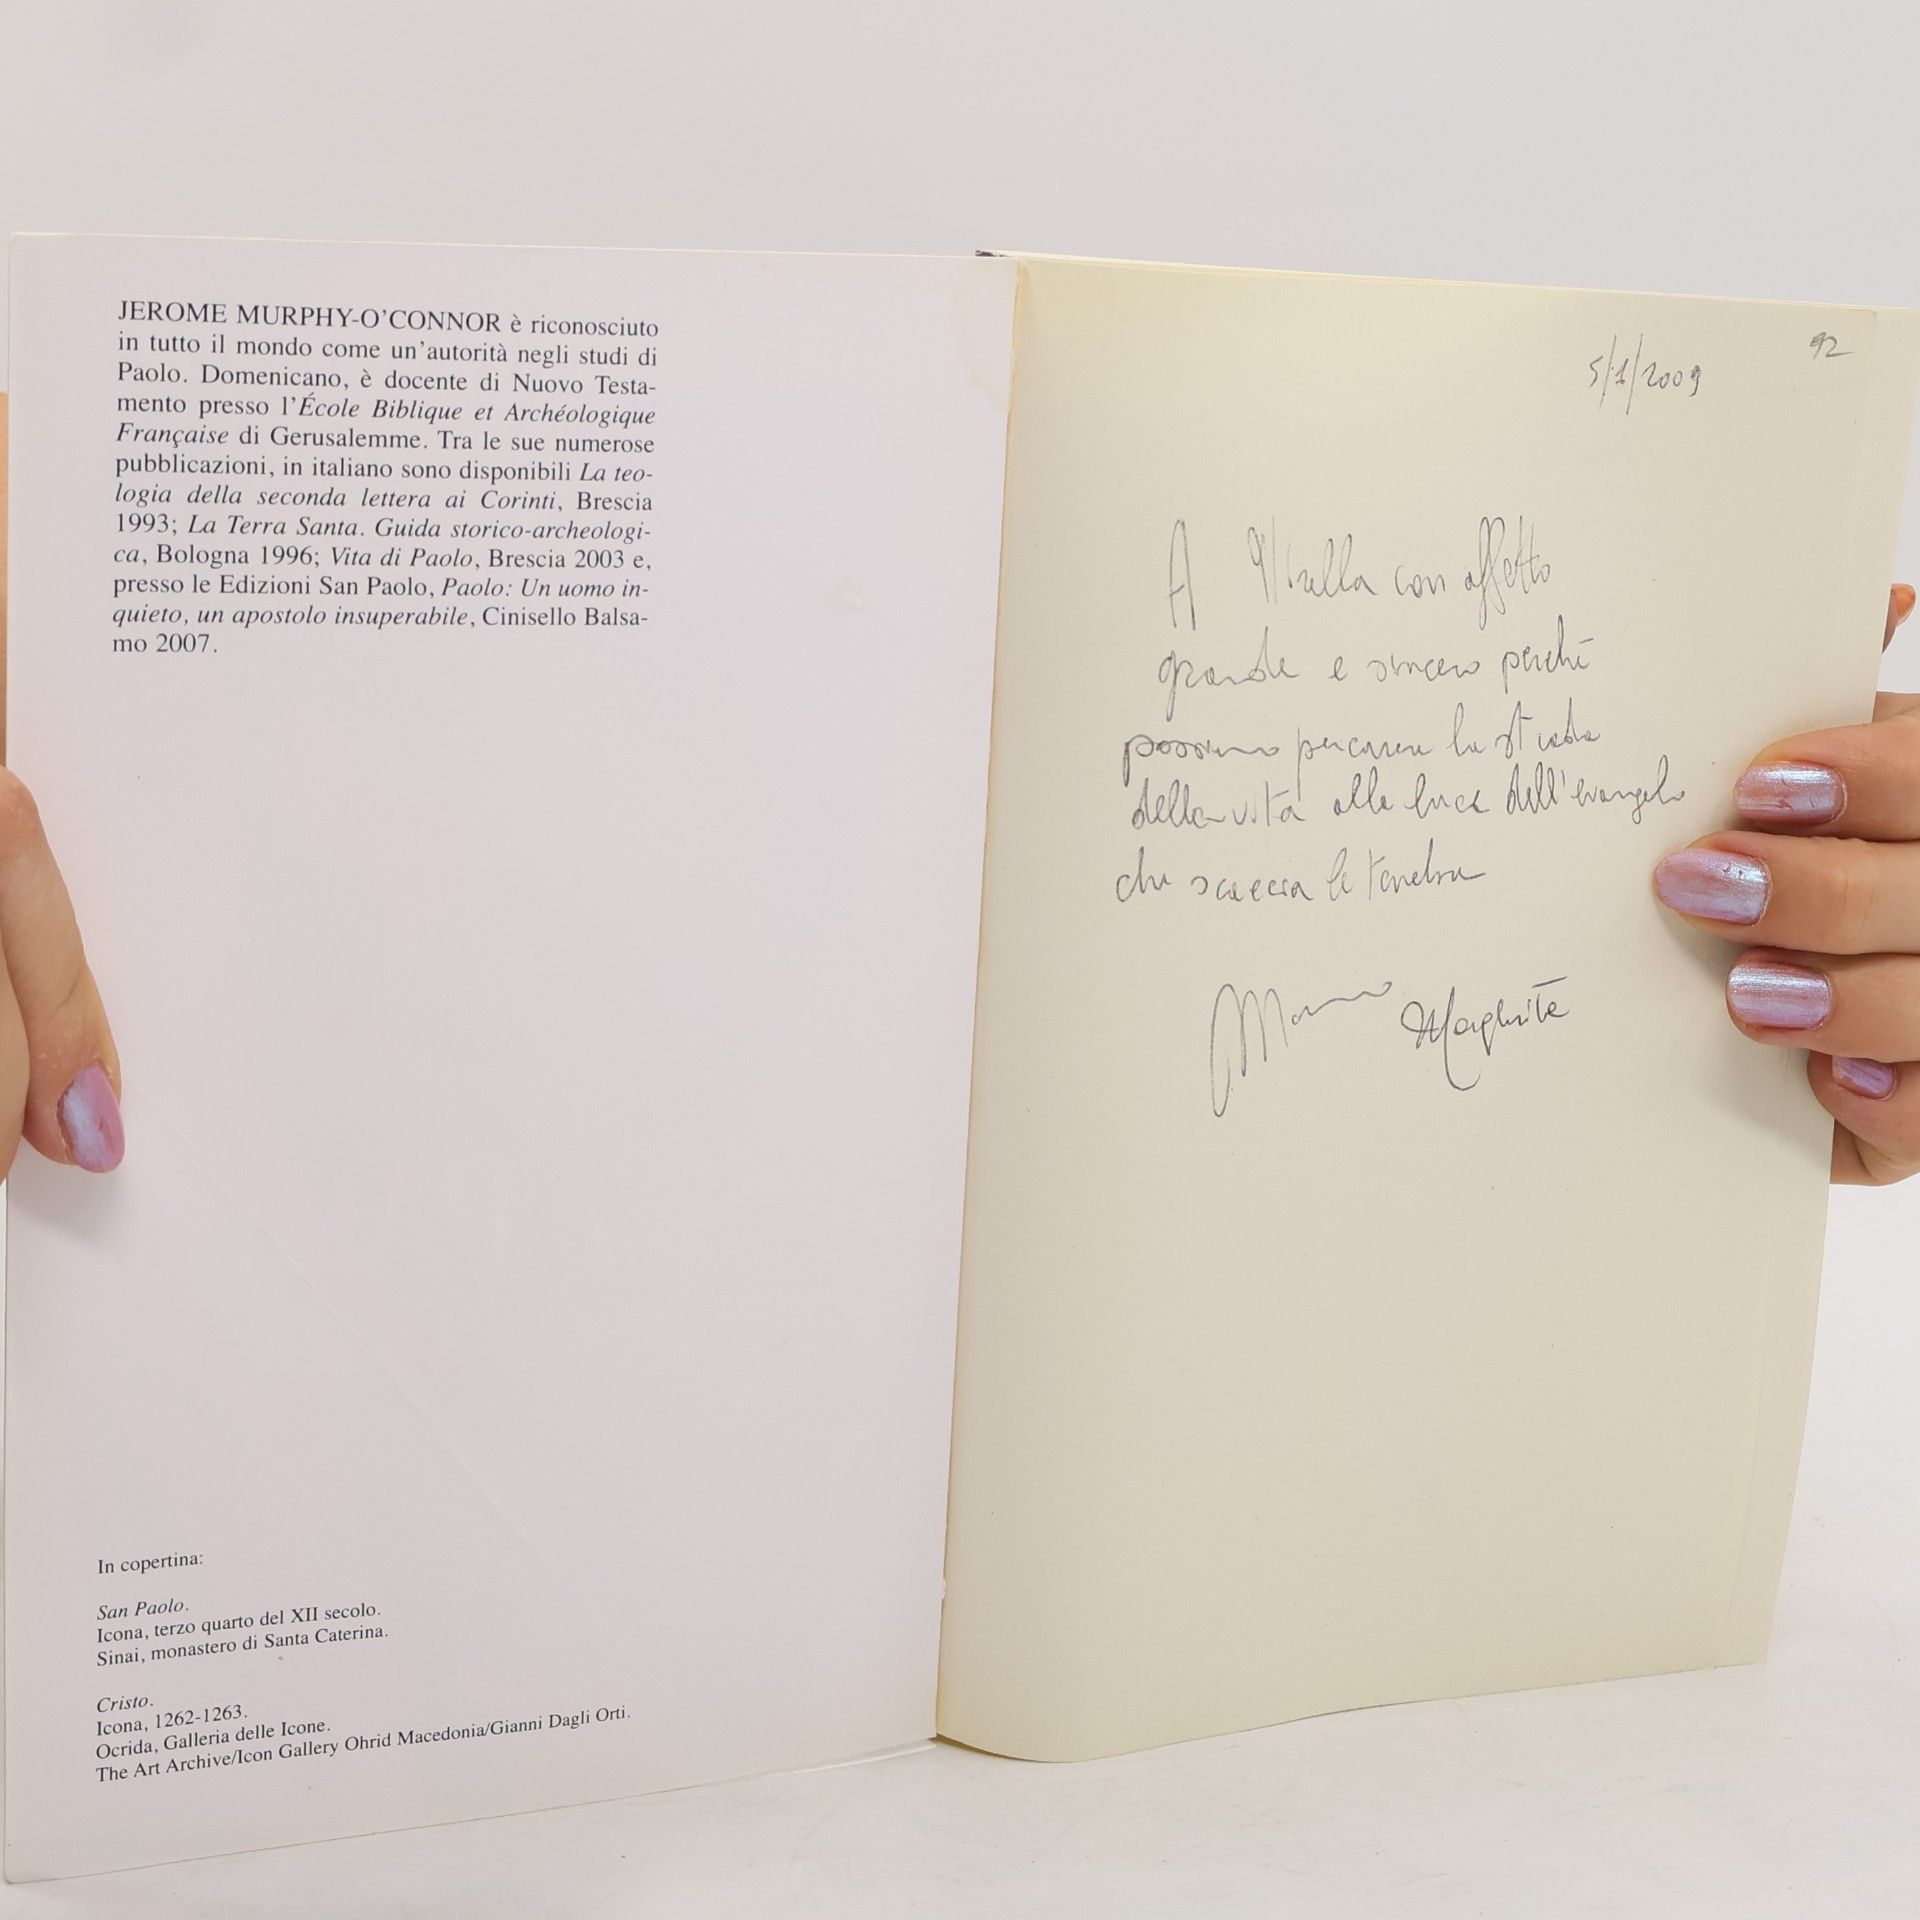 JEROME MURPHY-O'CONNOR è riconosciuto
in tutto il mondo come un'autorità negli studi di
Paolo. Domenicano, è docente di Nuovo Testa-
mento presso l'École Biblique et Archéologique
Française di Gerusalemme. Tra le sue numerose
pubblicazioni, in italiano sono disponibili La teo-
logia della seconda lettera ai Corinti, Brescia
1993; La Terra Santa. Guida storico-archeologi-
ca, Bologna 1996; Vita di Paolo, Brescia 2003 e,
presso le Edizioni San Paolo, Paolo: Un uomo in-
quieto, un apostolo insuperabile, Cinisello Balsa-
mo 2007.
In copertina:
San Paolo.
Icona, terzo quarto del XII secolo.
Sinai, monastero di Santa Caterina.
Cristo.
Icona, 1262-1263.
Ocrida, Galleria delle Icone.
The Art Archive/Icon Gallery Ohrid Macedonia/Gianni Dagli Orti.
92
5/1/2009
A Mirella con affetto
grande e sincero perché
possiamo percorrere la strada
della vita alla luce dell'evangelo
che scaccia le tenebre